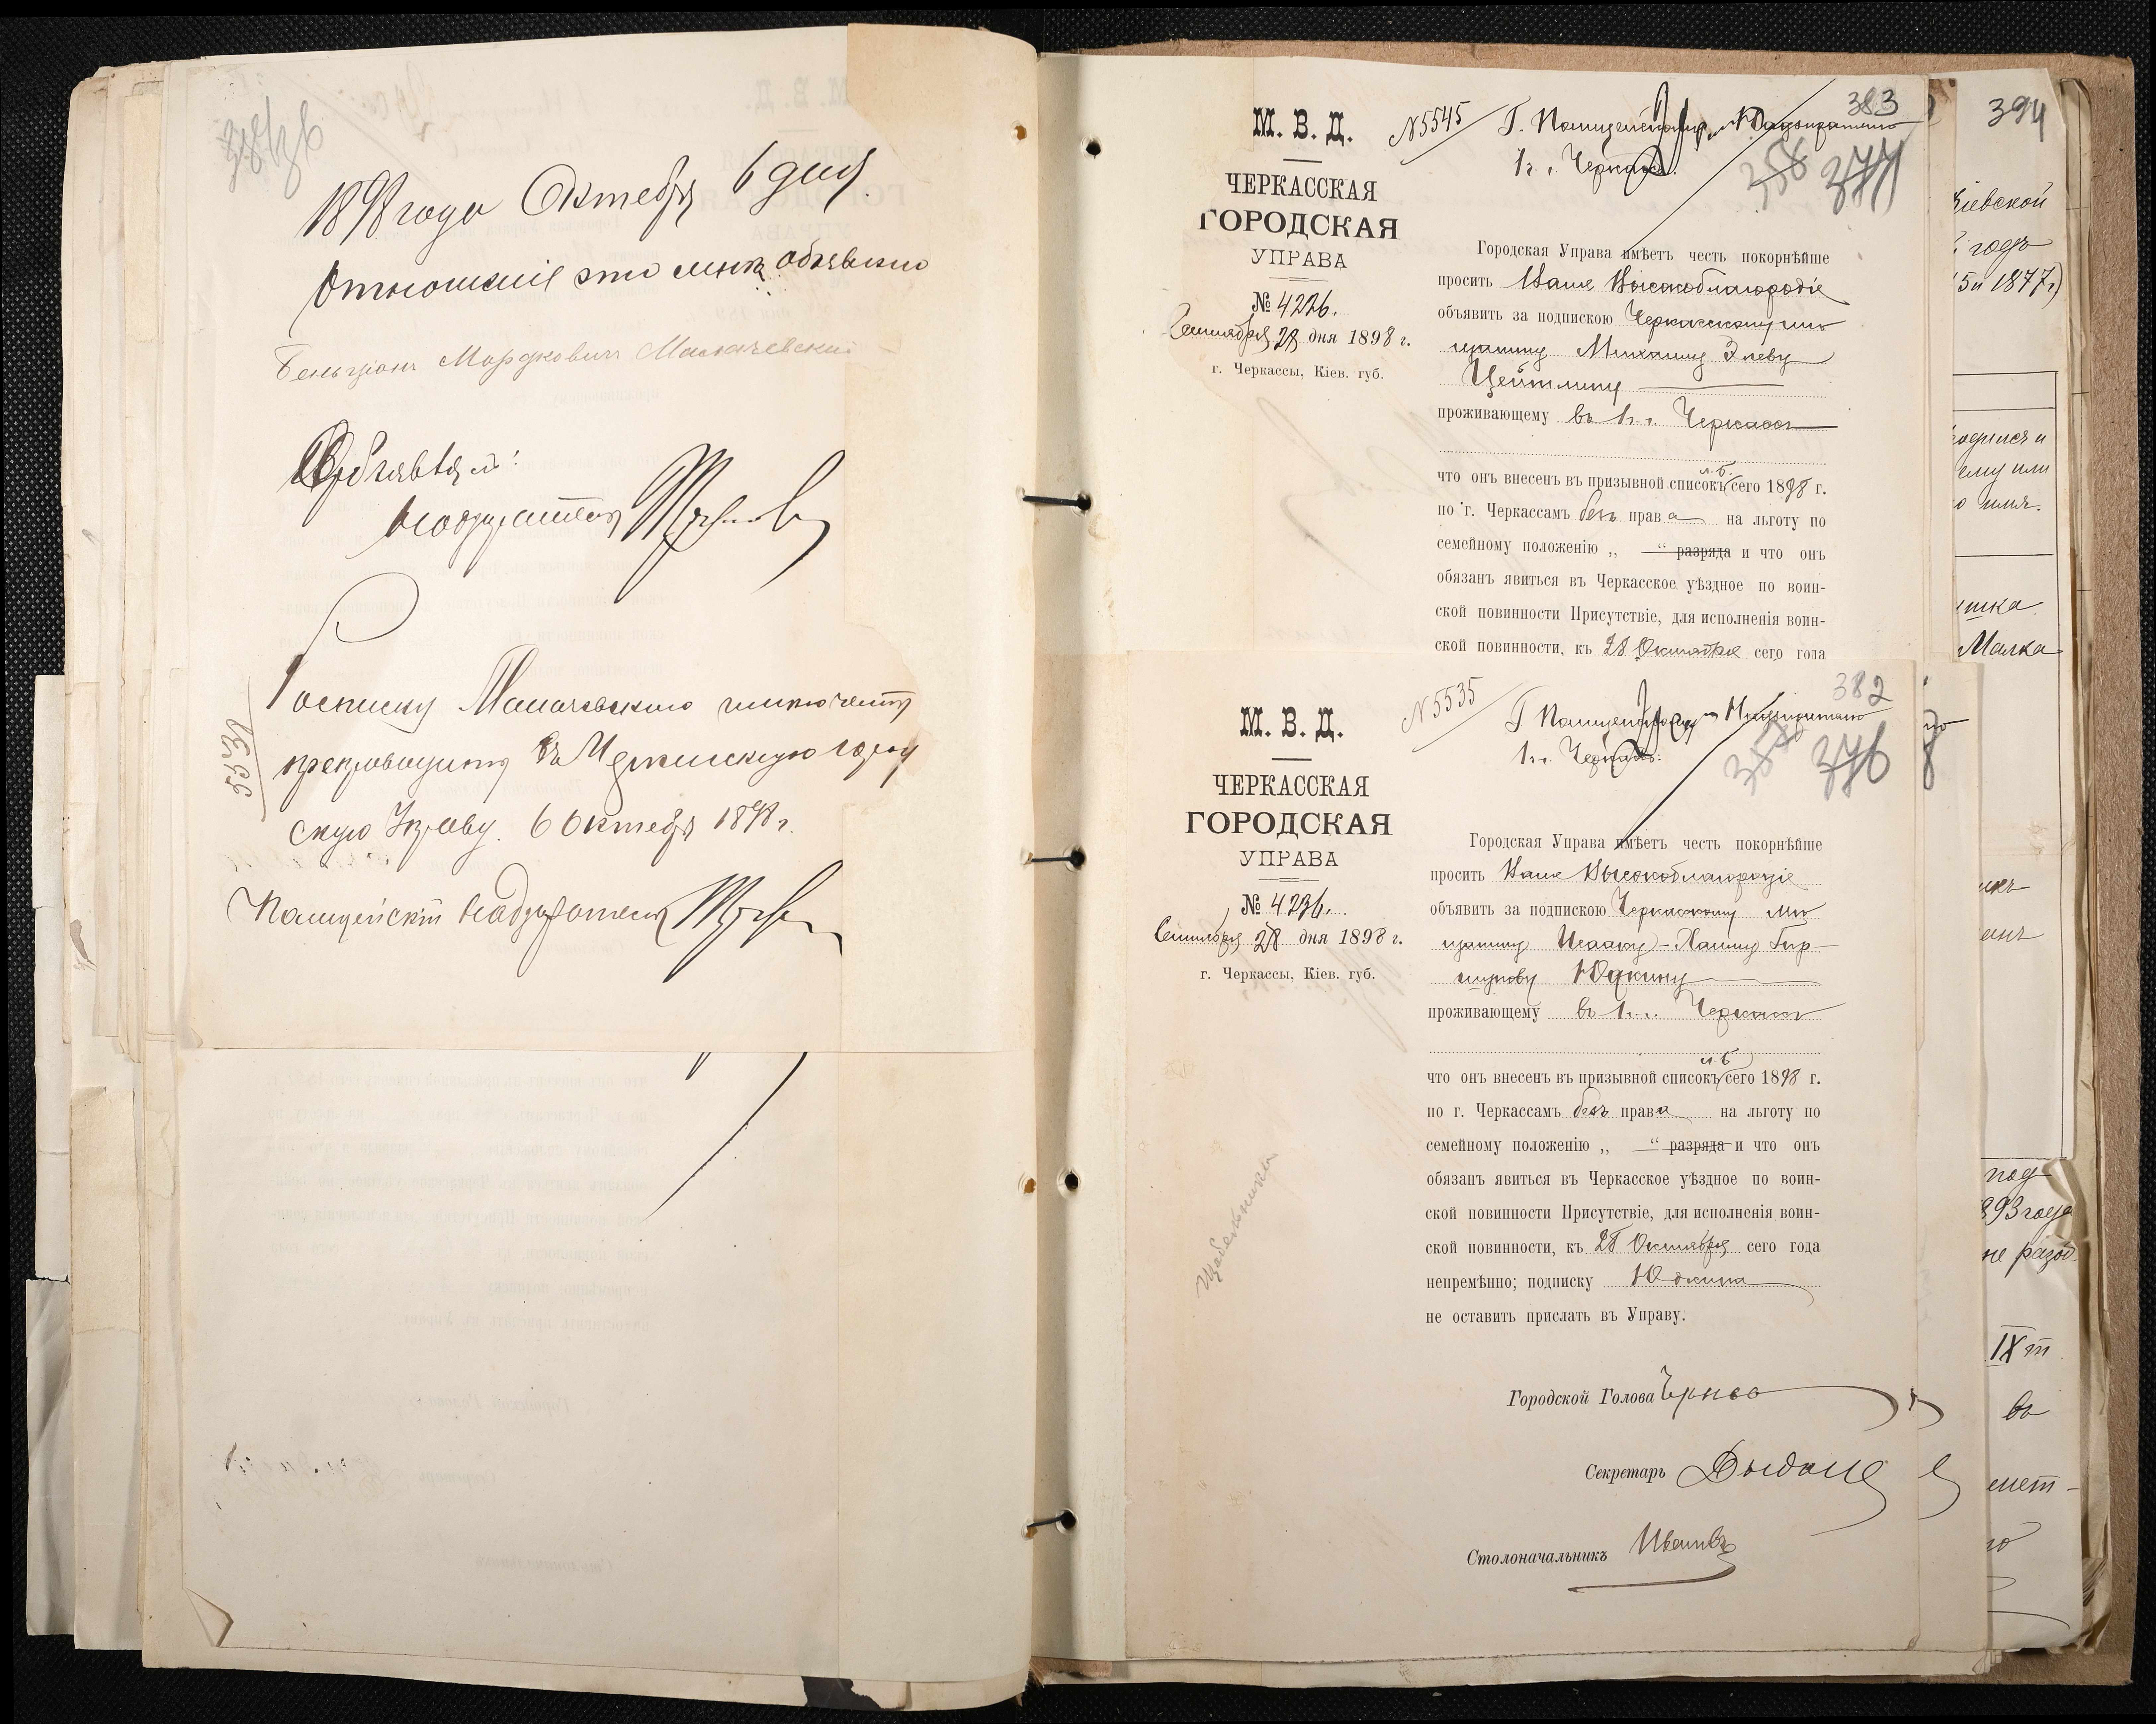 1898 года Октября 6 дня.
Отношеніе это мнѣ объявлено
Беньціонъ Мордковичъ Малачевскій
Объявилъ:
Надзиратель
Росписку Малачевского
препроводить въ Черкасскую Город
скую Управу. 6 Октября 1898 г.
5539
Полицейскій Надзиратель
383
М. В. Д.
N 5545
Г. Полицейскому Надзирателю
г. Черкассъ.
358 377
ЧЕРКАССКАЯ
ГОРОДСКАЯ
УПРАВА
№ 4226.
Сентября 28 дня 1898 г.
г. Черкассы, Кіев. губ.
Городская Управа имѣетъ честь покорнѣйше
просить Ваше Высокоблагородіе
объявить за подпискою Черкасскому мѣ
щанину Михаилу Элеву
Цейтлину
проживающему въ г. Черкассы
что онъ внесенъ въ призывной списокъ л. Б. сего 1898 г.
по г. Черкассамъ безъ права на льготу по
семейному положенію „ “ разряда и что онъ
обязанъ явиться въ Черкасское уѣздное по воин-
ской повинности Присутствіе, для исполненія воин-
ской повинности, къ 28 Октября сего года
382
М. В. Д.
N 5535
Г Полицейскому Надзирателю
г. Черкассъ.
376
ЧЕРКАССКАЯ
ГОРОДСКАЯ
УПРАВА
№ 4236.
Сентября 28 дня 1898 г.
г. Черкассы, Кіев. губ.
Городская Управа имѣетъ честь покорнѣйше
просить Ваше Высокоблагородіе
объявить за подпискою Черкасскому мѣ
щанину Исааку-Хаиму Гир-
шукову Юдкину
проживающему въ г. Черкассы
что онъ внесенъ въ призывной списокъ л. Б сего 1898 г.
по г. Черкассамъ безъ права на льготу по
семейному положенію „ “ разряда и что онъ
обязанъ явиться въ Черкасское уѣздное по воин-
ской повинности Присутствіе, для исполненія воин-
ской повинности, къ 28 Октября сего года
непремѣнно; подписку Юдкина
не оставить прислать въ Управу.
Городской Голова
Секретарь
Столоначальникъ Ивановъ
394
Кіевской
годъ
5и 1877г)
родился и
ему или
о имя.
Малка
под
893 года
не разо
IX т
въ